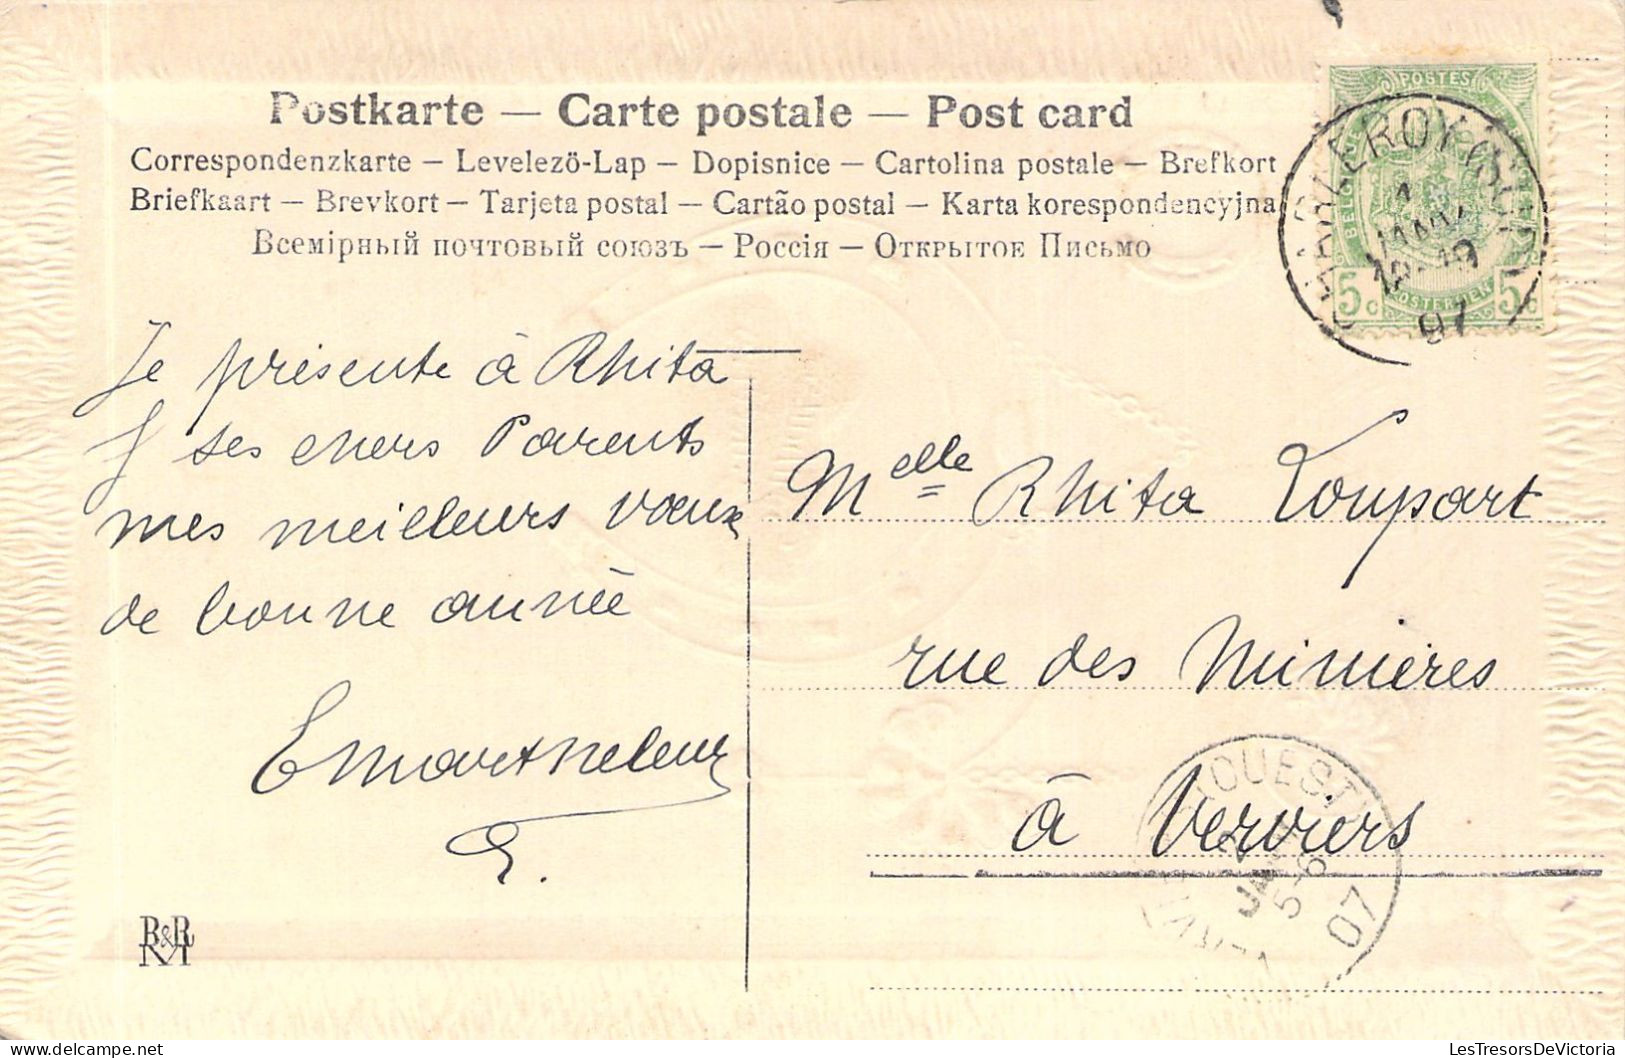 Postkarte — Carte postale — Post card
Correspondenzkarte – Levelezö-Lap – Dopisnice – Cartolina postale – Brefkort
Briefkaart – Brevkort – Tarjeta postal – Cartão postal – Karta korespondencyjna
Всемірный почтовый союзъ – Россія – Открытое Письмо
POSTES
BELGIQUE
5c POSTERIJEN 5c
CHARLEROY (SUD)
1
JANV
18-19
07
Je présente à Rhita
& ses chers Parents
mes meilleurs vœux
de bonne année
E.
Melle Rhita Loupart
rue des Minières
à Verviers
VERVIERS (OUEST)
2
JANV
5-6
07
R&R
LesTresorsDeVictoria.com